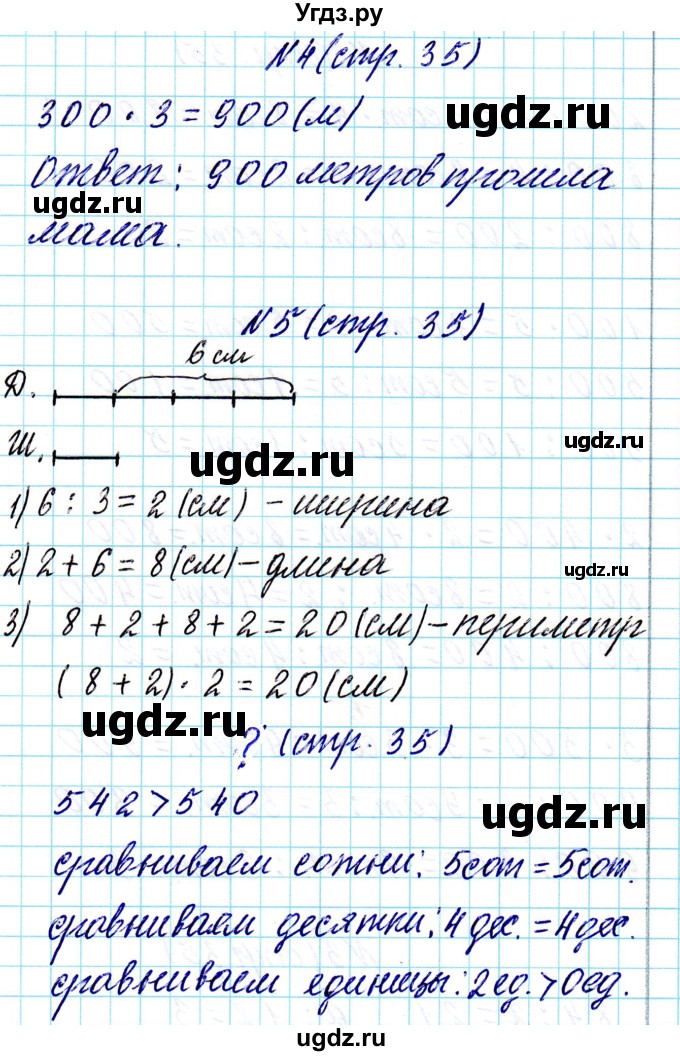 Угдз.ру
N4 (стр. 35)
300 · 3 = 900 (м)
Ответ: 900 метров прошла
мама.
N5 (стр. 35)
6 см
Д.
Ш.
1) 6 : 3 = 2 (см) - ширина
2) 2 + 6 = 8 (см) - длина
3) 8 + 2 + 8 + 2 = 20 (см) - периметр
(8 + 2) · 2 = 20 (см)
? (стр. 35)
542 > 540
сравниваем сотни: 5сот = 5сот.
сравниваем десятки: 4 дес. = 4 дес.
сравниваем единицы: 2ед. > 0ед.
ugdz.ru
ugdz.ru
ugdz.ru
ugdz.ru
ugdz.ru
ugdz.ru
ugdz.ru
ugdz.ru
ugdz.ru
ugdz.ru